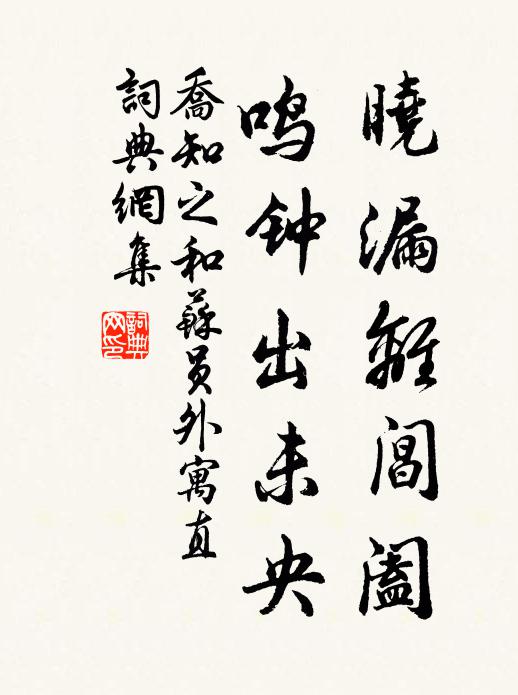 曉漏離閶闔
鳴钟出未央
喬知之和蘇員外寓直
詞典網集
詞典
网印